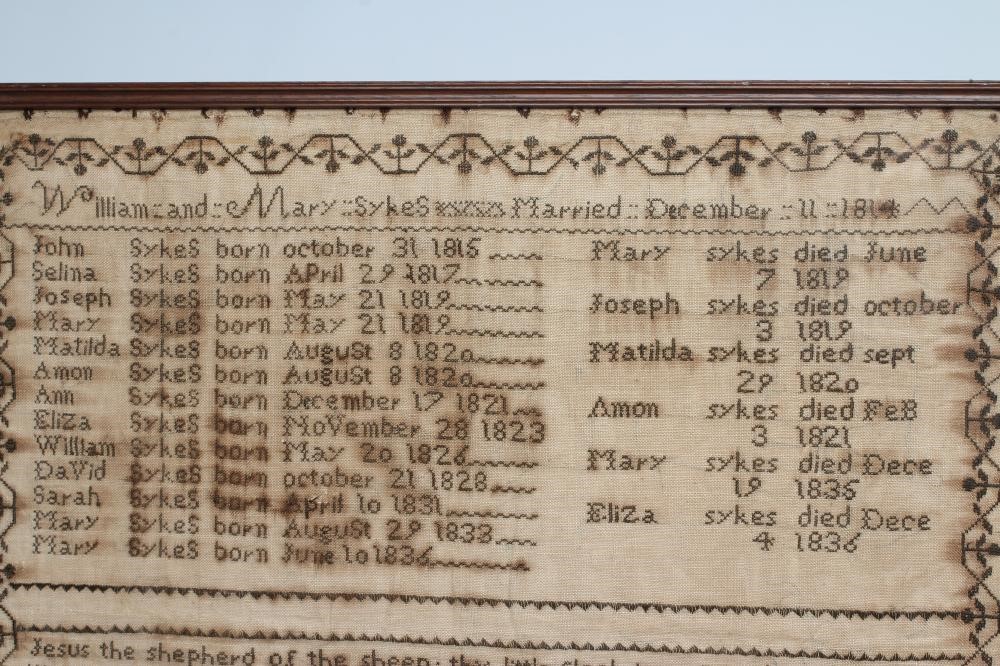 William and Mary Sykes Married December 11 1814
John SykeS born october 31 1815
Selina SykeS born APril 29 1817
Joseph SykeS born May 21 1819
Mary SykeS born May 21 1819
Matilda SykeS born AuguSt 8 1820
Amon SykeS born AuguSt 8 1820
Ann SykeS born December 17 1821
EliZa SykeS born NoVember 28 1823
William SykeS born May 20 1826
DaVid SykeS born october 21 1828
Sarah SykeS born April 10 1831
Mary SykeS born AuguSt 29 1833
Mary SykeS born June 10 1836
Mary sykes died June
7 1819
Joseph sykes died october
3 1819
Matilda sykes died sept
29 1820
Amon sykes died FeB
3 1821
Mary sykes died Dece
19 1835
EliZa sykes died Dece
4 1836
Jesus the shepherd of the sheep thy little